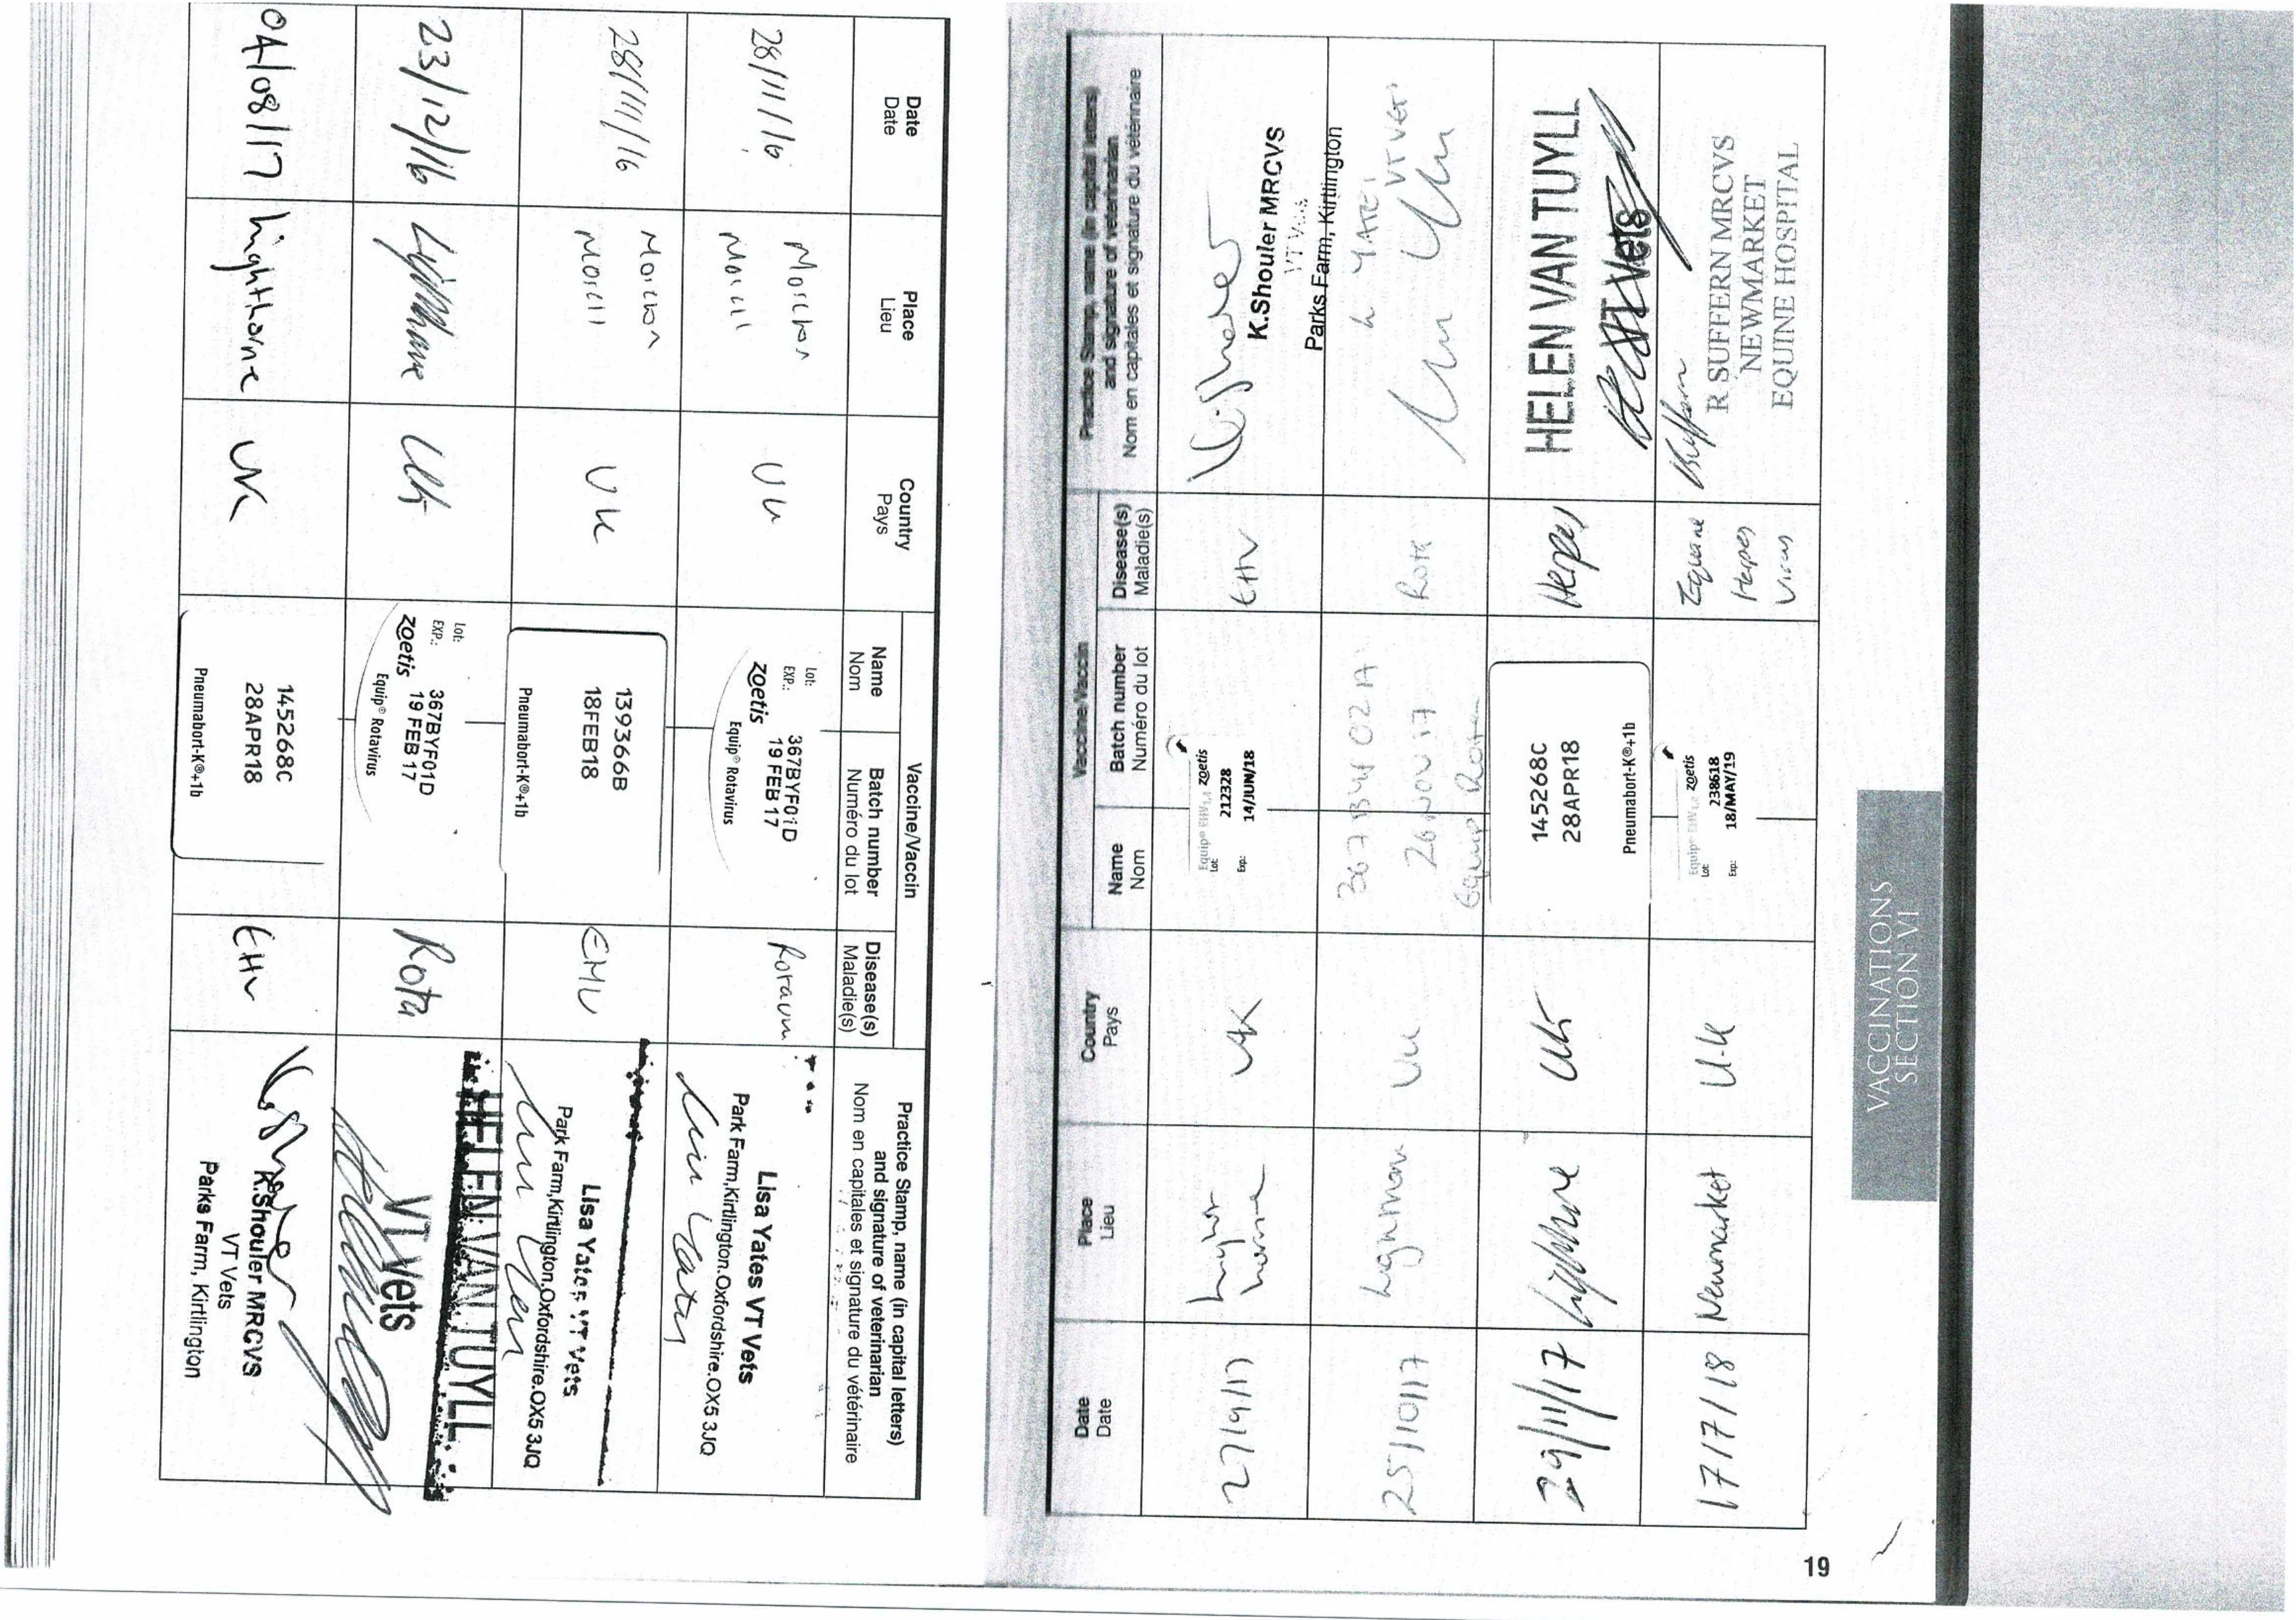 Date
Date
Place
Lieu
Country
Pays
Vaccine/Vaccin
Name
Nom
Batch number
Numéro du lot
Disease(s)
Maladie(s)
Practice Stamp, name (in capital letters)
and signature of veterinarian
Nom en capitales et signature du vétérinaire
28/11/16
Moreton
Morell
UK
Lot: 367BYF01D
EXP.: 19 FEB 17
zoetis
Equip® Rotavirus
Lisa Yates VT Vets
Park Farm,Kirtlington.Oxfordshire.OX5 3JQ
Lisa Yates
28/11/16
Moreton
Morell
UK
139366B
18FEB18
Pneumabort-K®+1b
Lisa Yates VT Vets
Park Farm,Kirtlington.Oxfordshire.OX5 3JQ
23/12/16
UK
Lot: 367BYF01D
EXP.: 19 FEB 17
zoetis
Equip® Rotavirus
Rota
HELEN VAN TUYLL
VT Vets
04/08/17
highthorne
UK
145268C
28APR18
Pneumabort-K®+1b
EHV
K.Shouler MRCVS
VT Vets
Parks Farm, Kirtlington
VACCINATIONS
SECTION VI
Date
Date
Place
Lieu
Country
Pays
Vaccine/Vaccin
Name
Nom
Batch number
Numéro du lot
Disease(s)
Maladie(s)
Practice Stamp, name (in capital letters)
and signature of veterinarian
Nom en capitales et signature du vétérinaire
27/9/17
UK
Equip® EHV1,4 zoetis
Lot: 212328
Exp: 14/JUN/18
EHV
K.Shouler MRCVS
VT Vets
Parks Farm, Kirtlington
25/10/17
UK
26 Nov 17
Equip Rota
Rota
L YATES
VT VETS
29/11/17
UK
145268C
28APR18
Pneumabort-K®+1b
Herpes
HELEN VAN TUYLL
VT Vets
17/7/18
Newmarket
U.K
Equip® EHV1,4 zoetis
Lot: 238618
Exp: 18/MAY/19
Equine
Herpes
Virus
R SUFFERN MRCVS
NEWMARKET
EQUINE HOSPITAL
19